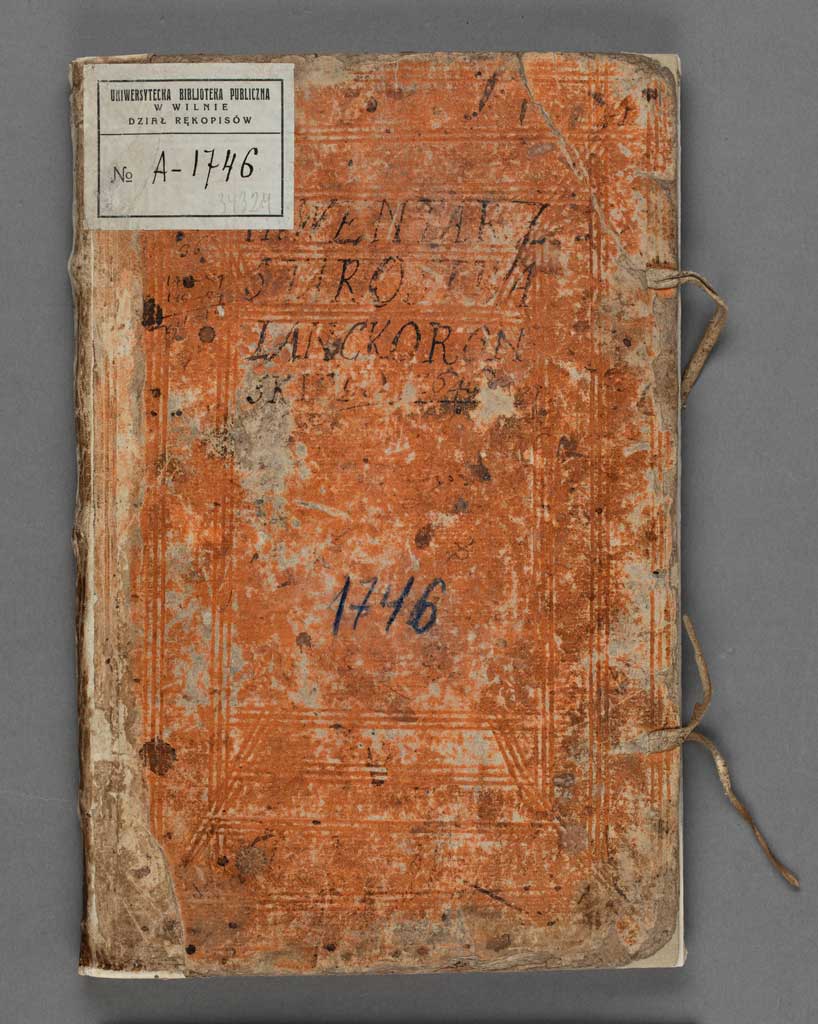 UNIWERSYTECKA BIBLIOTEKA PUBLICZNA
W WILNIE
DZIAŁ RĘKOPISÓW
№ A-1746
34324
INWENTARZ
STAROSTWA
LANCKORON
SKIEGO
1746